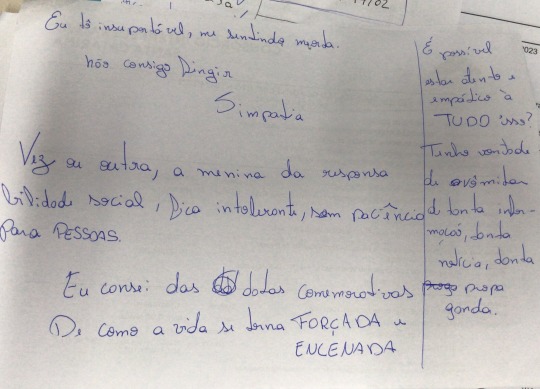 Eu tô insuportável, me sentindo merda.
não consigo Fingir
Simpatia
Vez ou outra, a menina da responsa
bilidade social, Fica intolerante, sem paciência
Para PESSOAS.
Eu cansei das datas comemorativas
De como a vida se torna FORÇADA e
ENCENADA
É possível
estar atento e
empático à
TUDO isso?
Tenho vontade
de vômitar
d tanta infor-
mação, tanta
notícia, tanta
propa
ganda.
17/02
2023